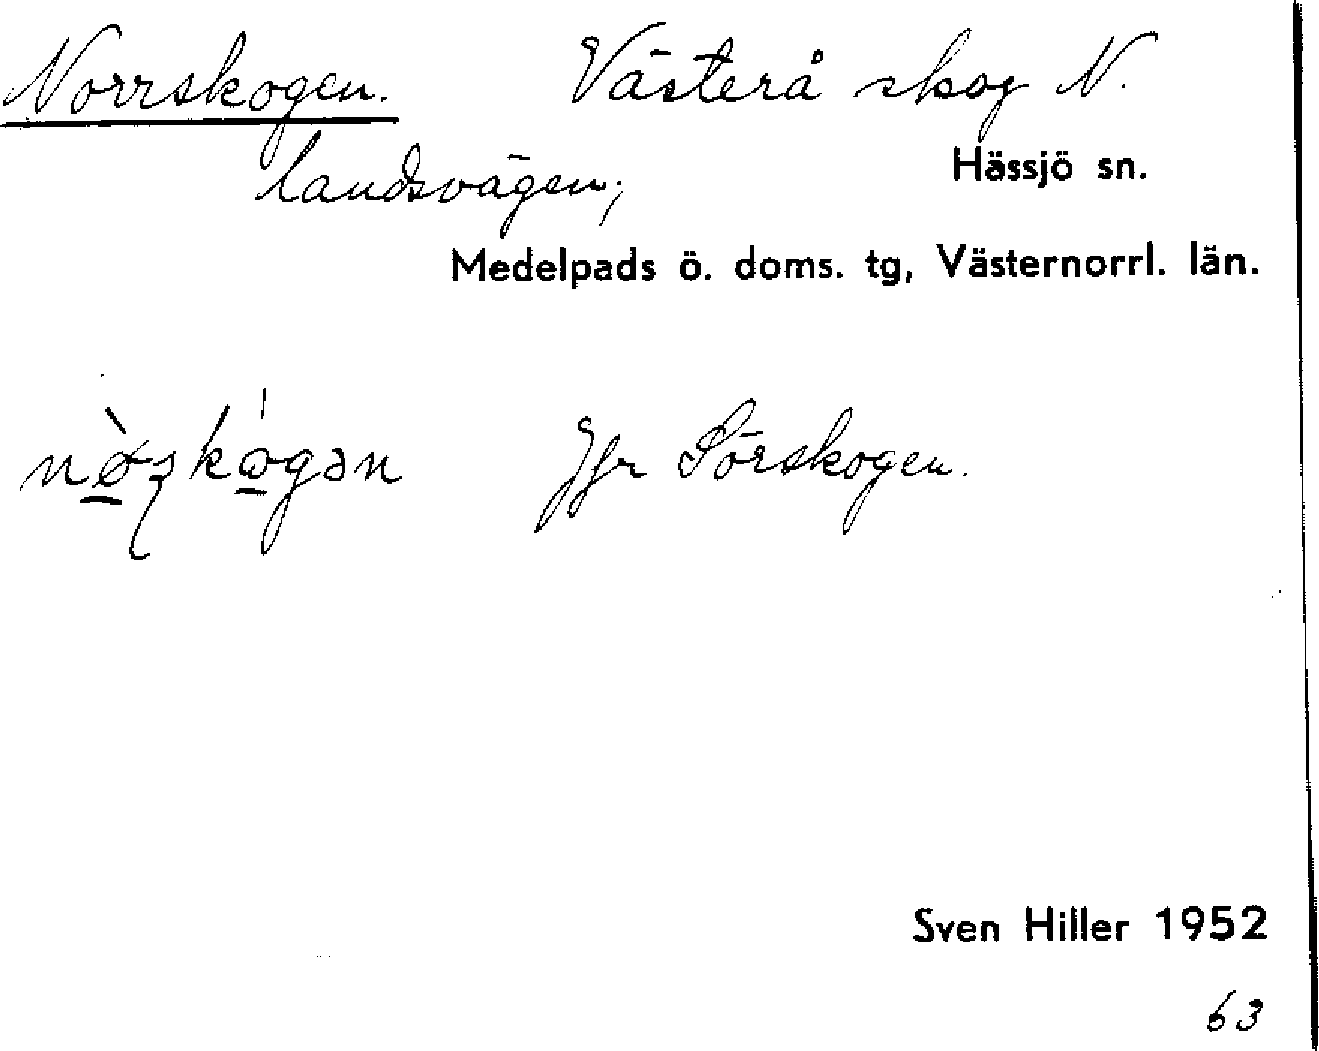 Norrskogen. Västerå skog N.
landsvägen; Hässjö sn.
Medelpads ö. doms. tg, Västernorrl. län.
Jfr Sörskogen.
Sven Hiller 1952
63